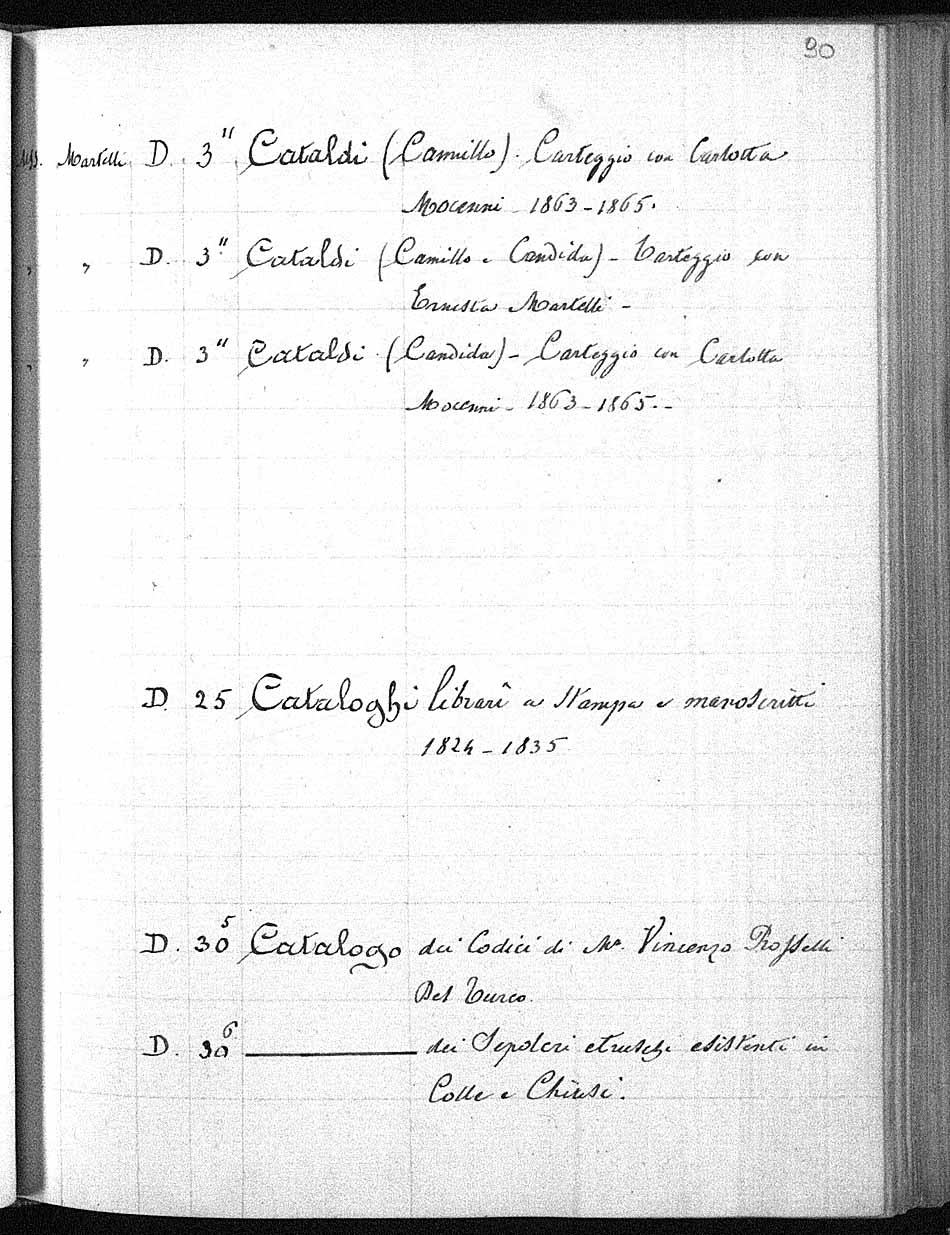 90
Mss. Martelli D. 3" Cataldi (Camillo). Carteggio con Carlotta
Mocenni - 1863-1865.
" " D. 3" Cataldi (Camillo e Candida) - Carteggio con
Ernesta Martelli -
" " D. 3" Cataldi (Candida) - Carteggio con Carlotta
Mocenni - 1863-1865. -
D. 25 Cataloghi librarî a stampa e manoscritti
1824-1835
D. 30⁵ Catalogo dei Codici di Mr. Vincenzo Rosselli
Del Turco.
D. 30⁶ ——— dei Sepolcri etruschi esistenti in
Colle e Chiusi.